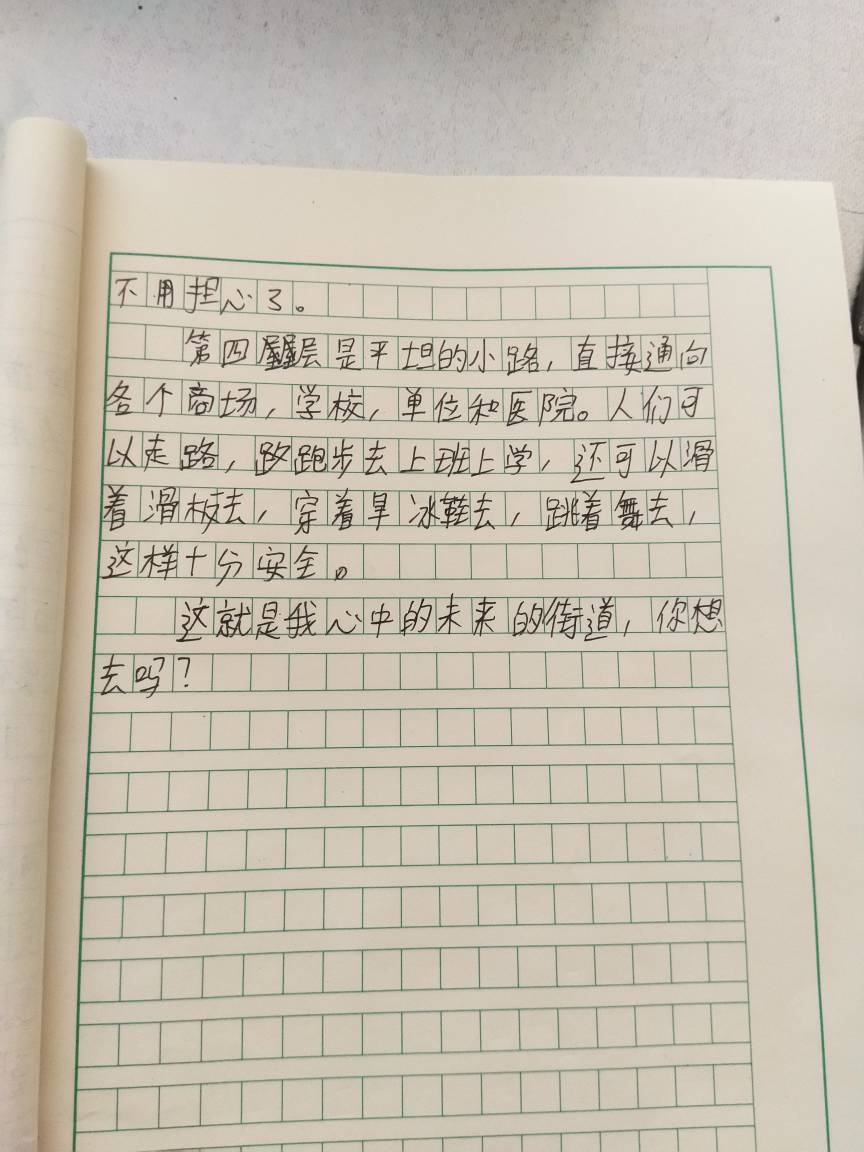 不用担心了。
第四层是平坦的小路，直接通向
各个商场，学校，单位和医院。人们可
以走路，跑步去上班上学，还可以滑
着滑板去，穿着旱冰鞋去，跳着舞去，
这样十分安全。
这就是我心中的未来的街道，你想
去吗？